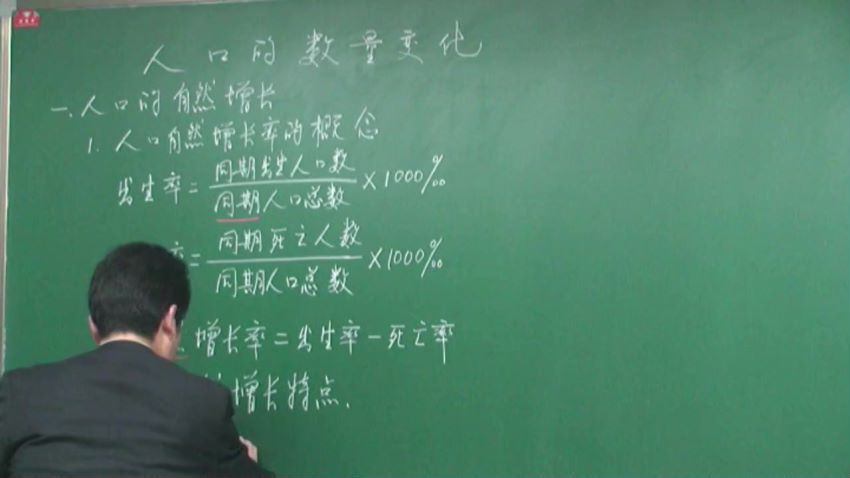 人口的数量变化
一.人口的自然增长
1. 人口自然增长率的概念
出生率=同期出生人口数
同期人口总数
×1000‰
率=同期死亡人数
同期人口总数
×1000‰
增长率=出生率-死亡率
增长特点.